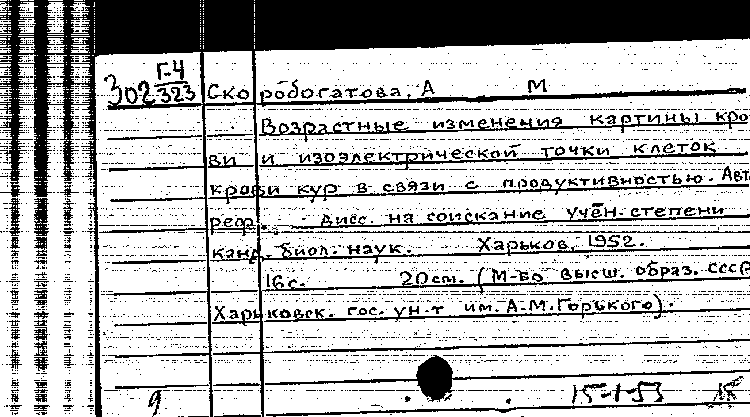 302 Г-4
323
Скоробогатова, А М
Возрастные изменения картины кро
ви и изоэлектрической точки клеток
крови кур в связи с продуктивностью. Авт
реф. дисс. на соискание учён. степени
канд. биол. наук. Харьков, 1952.
16 с. 20 см. (М-во высш. образ. СССР
Харьковск. гос. ун-т им. А.М.Горького).
9 15-1-53